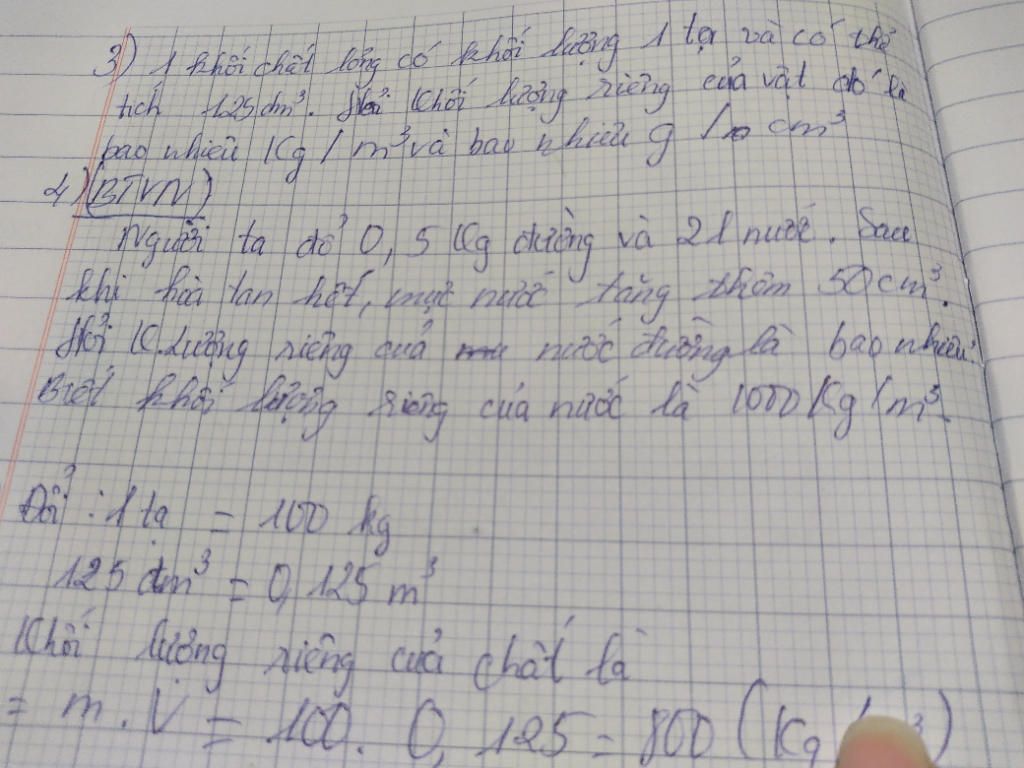 3) 1 khối chất lỏng có khối lượng 1 tạ và có thể
tích 125 dm³. Hỏi khối lượng riêng của vật đó là
bao nhiêu Kg/m³ và bao nhiêu g/cm³
4) (BTVN)
Người ta đổ 0,5 Kg đường và 2l nước. Sau
khi hòa tan hết, mực nước tăng thêm 50cm³.
Hỏi K.Lượng riêng của nước đường là bao nhiêu
Biết khối lượng riêng của nước là 1000Kg/m³
Đổi: 1 tạ = 100 kg
125 dm³ = 0,125 m³
Khối lượng riêng của chất là
= m.V = 100.0,125 = 800 (Kg ³)